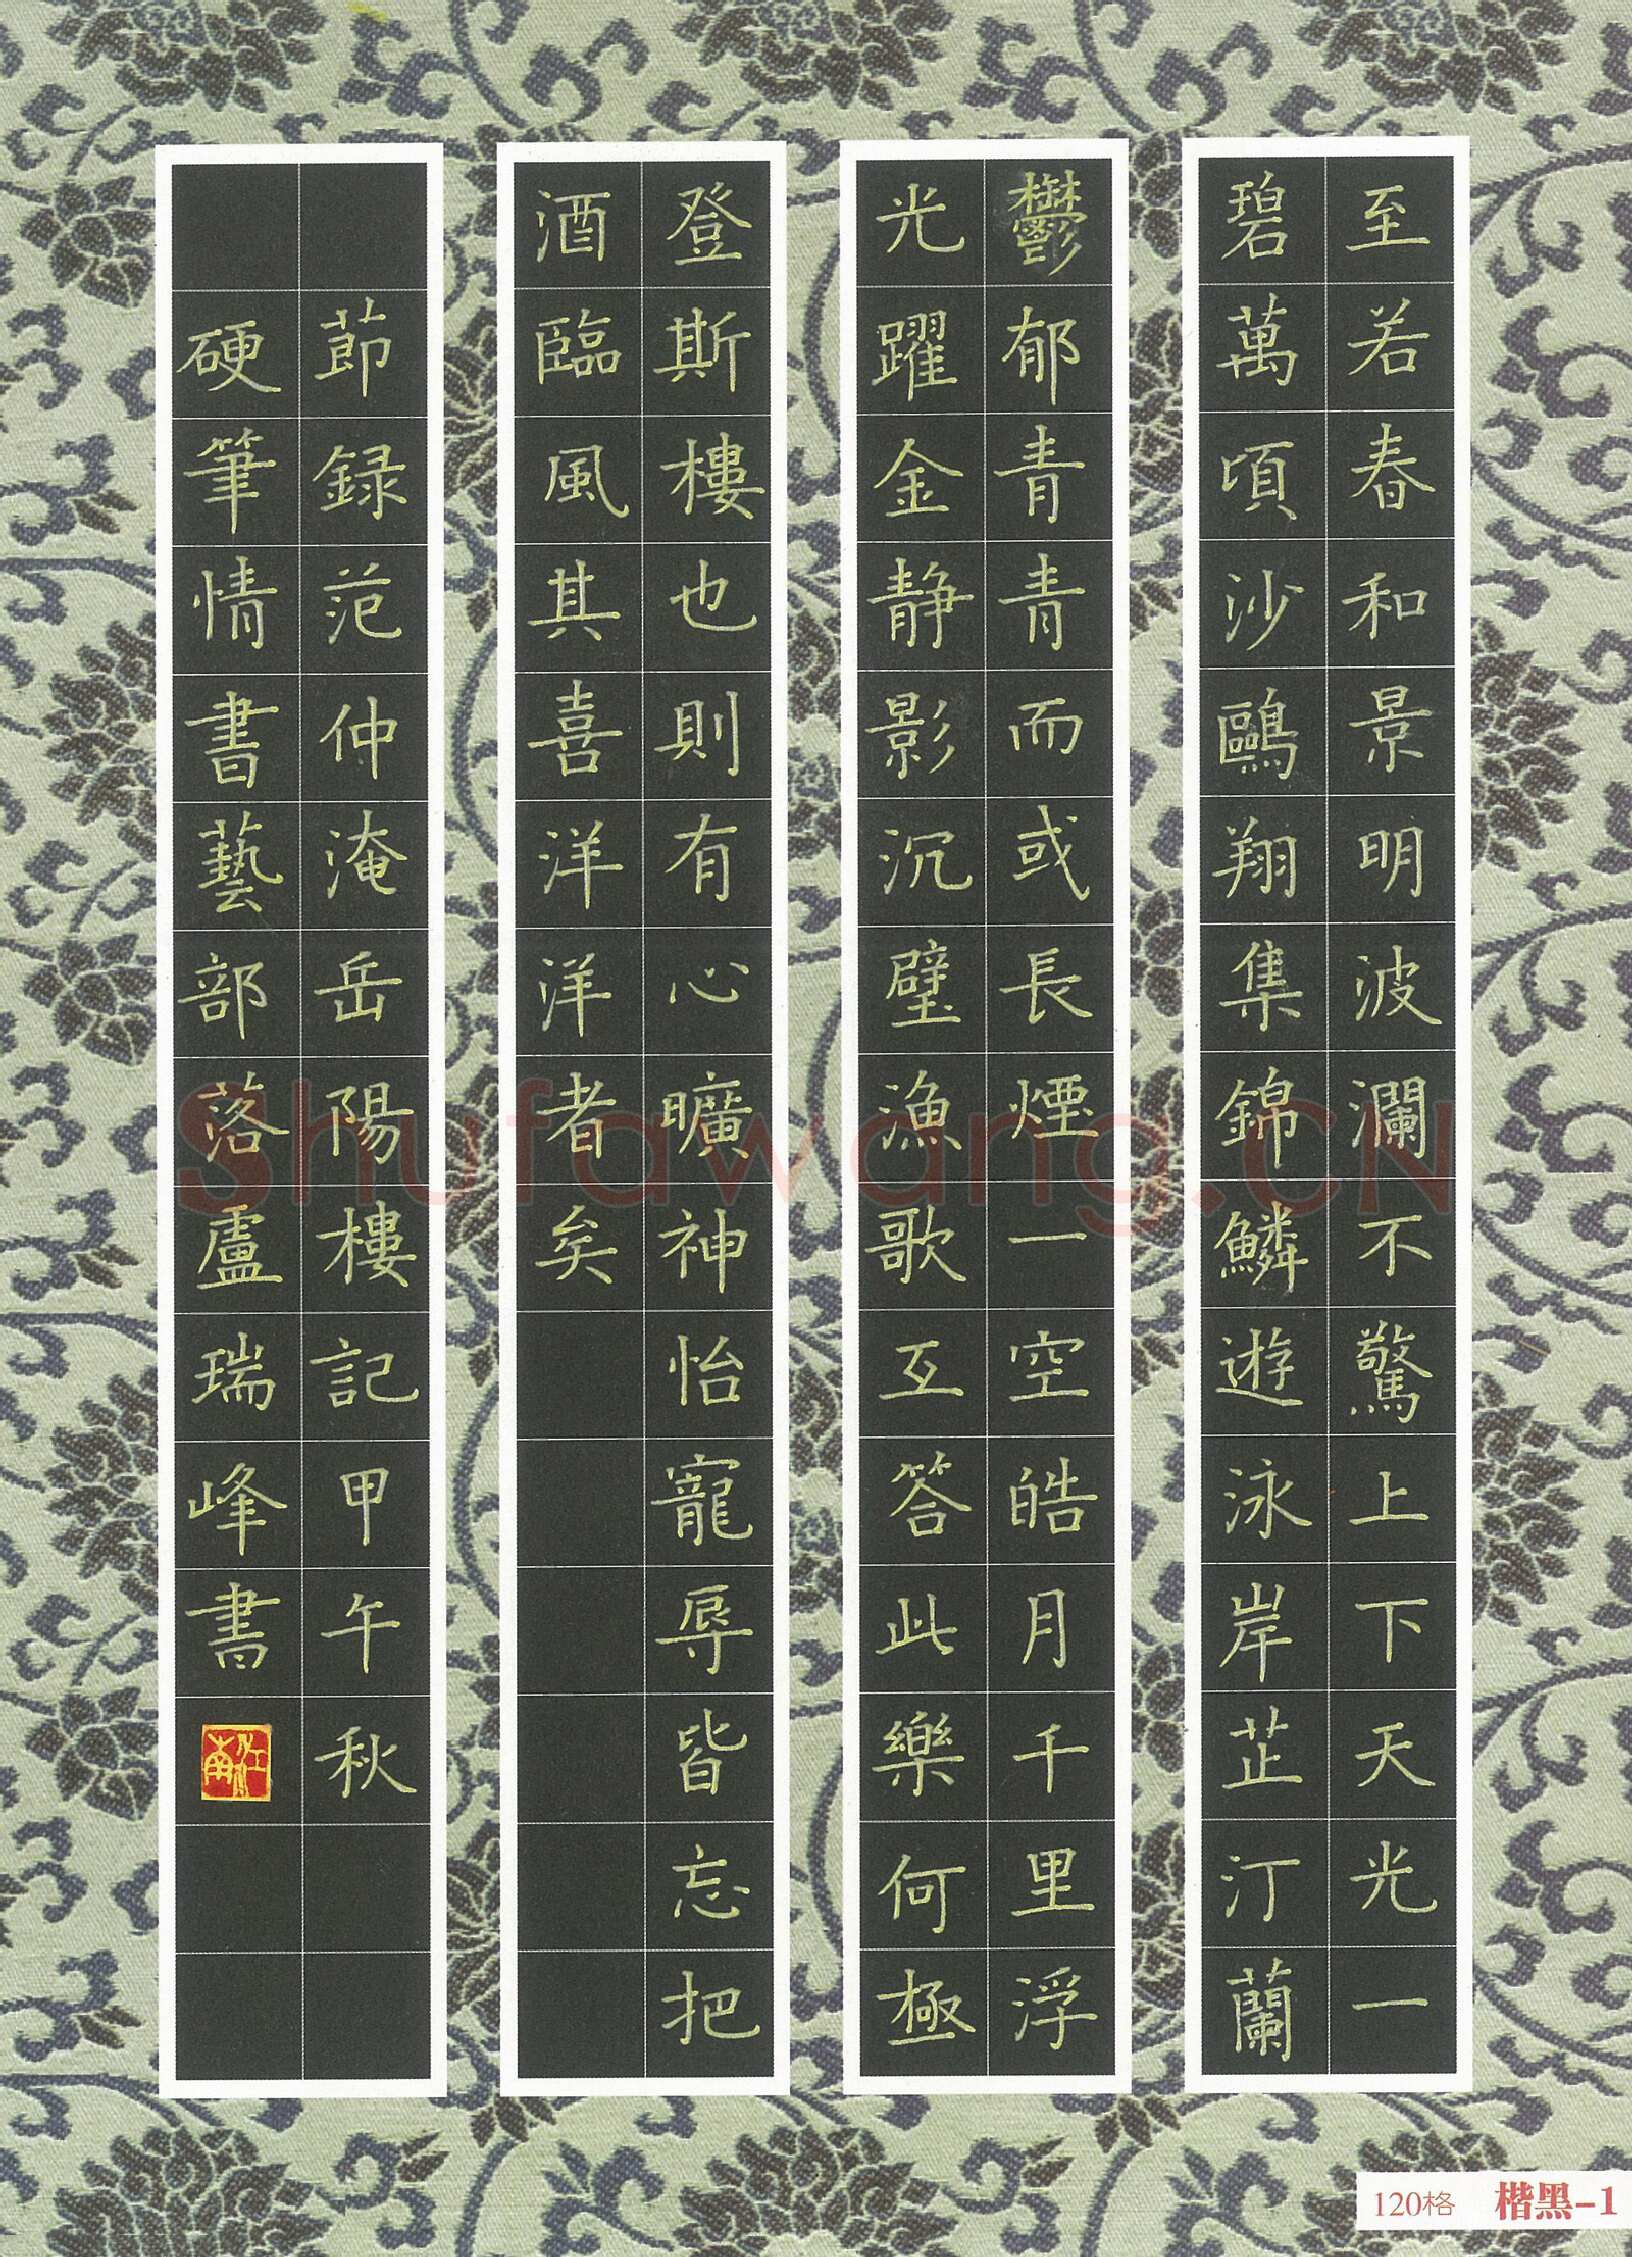 至若春和景明波瀾不驚上下天光一
碧萬頃沙鷗翔集錦鱗遊泳岸芷汀蘭
鬱郁青青而或長煙一空皓月千里浮
光躍金静影沉璧漁歌互答此樂何極
登斯樓也則有心曠神怡寵辱皆忘把
酒臨風其喜洋洋者矣
節録范仲淹岳陽樓記甲午秋
硬筆情書藝部落盧瑞峰書
江南
shufawang.CN
120格 楷黑-1